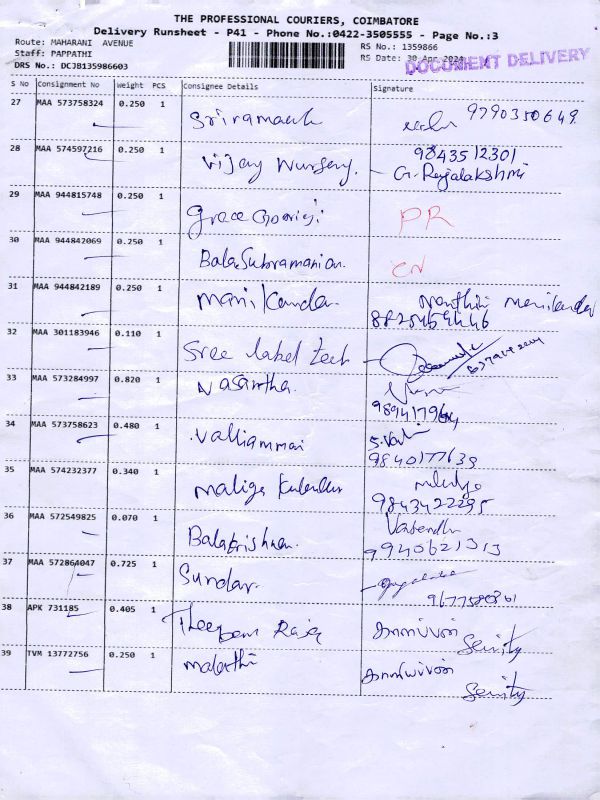 THE PROFESSIONAL COURIERS, COIMBATORE
Delivery Runsheet - P41 - Phone No.:0422-3505555 - Page No.:3
Route: MAHARANI AVENUE
RS No.: 1359866
Staff: PAPPATHI
RS Date: 30 Apr 2024
DOCUMENT DELIVERY
DRS No.: DCJB135986603
S No Consignment No Weight PCS Consignee Details Signature
27 MAA 573758324 0.250 1 9790350649
28 MAA 574597216 0.250 1 Vijay Nursery. 9843512301
G. Rajalakshmi
29 MAA 944815748 0.250 1 PR
30 MAA 944842069 0.250 1 BalaSubramanian.
31 MAA 944842189 0.250 1 Manikanda.
32 MAA 301183946 0.110 1 Sree label tech
33 MAA 573284997 0.820 1 Vasantha.
34 MAA 573758623 0.480 1 Valliammai
9840177639
35 MAA 574232377 0.340 1 Maliga
9843422295
36 MAA 572549825 0.070 1 Balakrishnan.
9940621313
37 MAA 572864047 0.725 1 Sundar.
38 APK 731185 0.405 1
39 TVM 13772756 0.250 1 Malathi